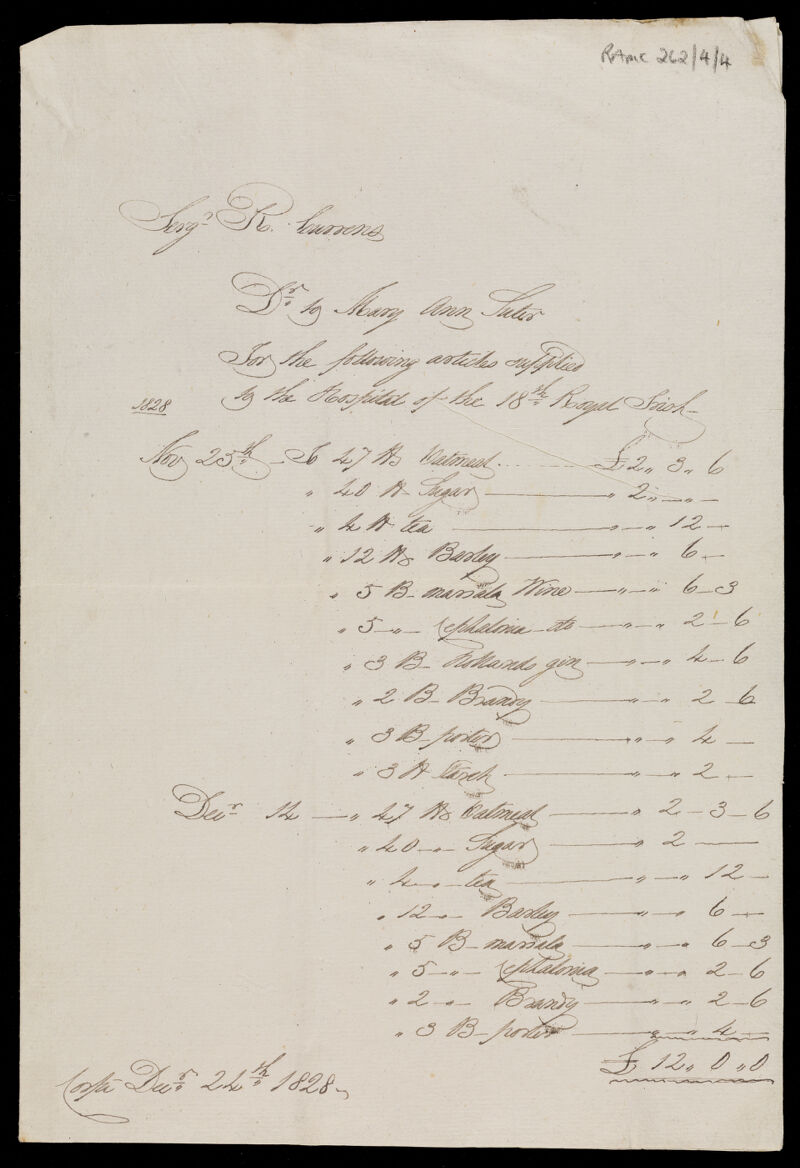 RAMC 262/4/4
Sergt R. Currens
Dr to Mary Ann Suter
For the following articles supplied
to the Hospital of the 18th Royal Irish
1828
Nov 23th - To 47 lb Oatmeal ........ £2 " 3 " 6
" 40 lb Sugar — " 2 " — " -
" 4 lb tea — " — " 12 —
" 12 lbs Barley — " — " 6 —
" 5 B- marsala Wine — " — " 6 - 3
" 5 - " Cephelonia - do — " — " 2 - 6
" 3 B- Hollands gin — " — " 4 - 6
" 2 B- Brandy — " — " 2 6
" 3 B- porter — " — " 4 —
" 3 lb Starch — " " 2 —
Decr 14 — " 47 lbs Oatmeal — " 2 - 3 - 6
" 40 - " Sugar — " 2 —
" 4 - " tea — " — " 12 —
" 12 - " Barley — " — " 6 —
" 5 B- marsala — " — " 6 - 3
" 5 - " Cephalonia — " — " 2 - 6
" 2 - " Brandy — " — " 2 - 6
" 3 B- porter — " " 4 —
£ 12 " 0 " 0
Corfu Decr 24th 1828